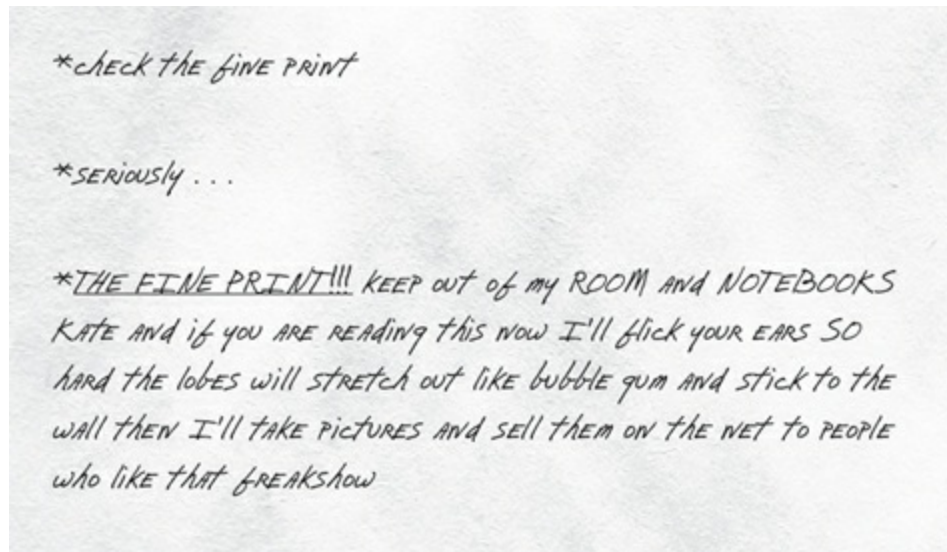 *check the fine print
*seriously . . .
*THE FINE PRINT!!! KEEP out of my ROOM and NOTEBOOKS
KATE And if you ARE READing this now I'll flick your EARS SO
hard the lobes will stretch out like bubble gum and stick to the
wall then I'll take pictures and sell them on the net to people
who like that freakshow